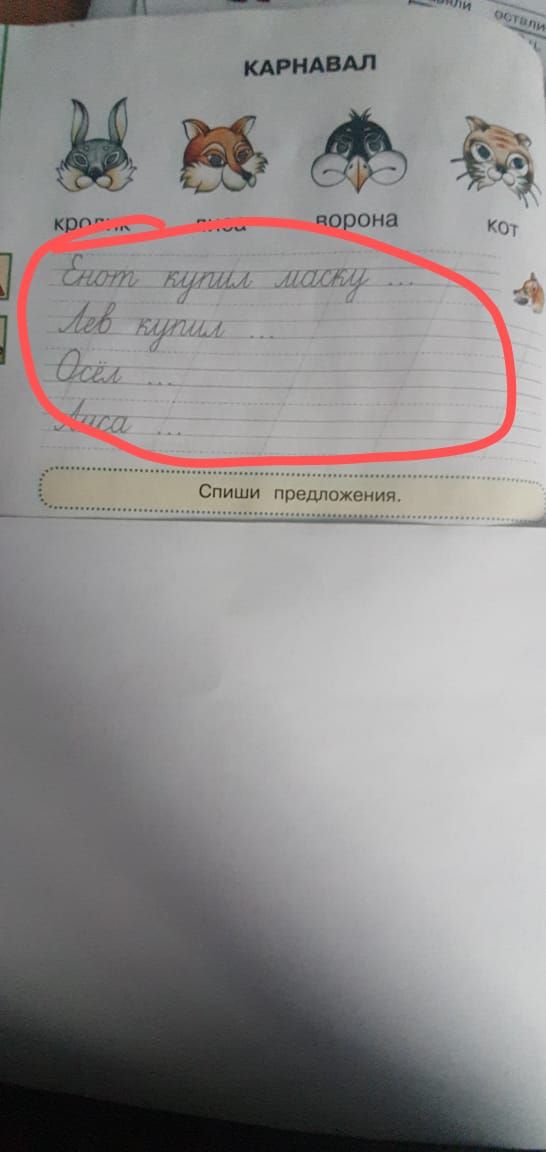 остали
КАРНАВАЛ
кролик лиса ворона кот
Енот купил маску ...
Лев купил ...
Осёл ...
Лиса ...
Спиши предложения.